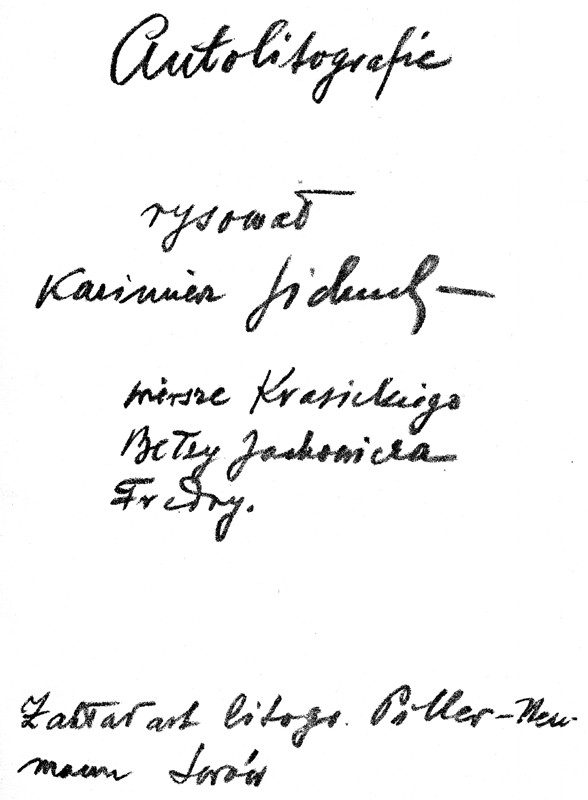 Autolitografie
rysował
Kazimierz Sichulski
wiersze Krasickiego
Bełzy Jachowicza
Fredry.
Zakład art litogr. Piller-Neu-
mann Lwów